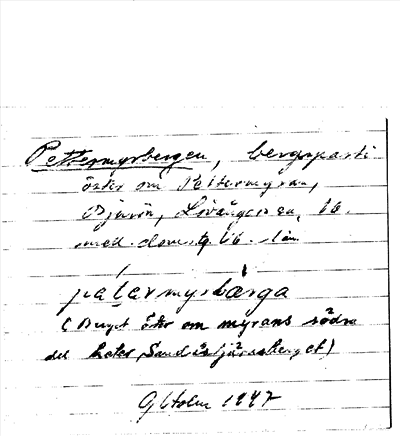 Pettermyrbergen, bergsparti
öster om Pettermyran,
Bjurön, Lövångers sn, Vb.
med. dom. Vb. län
patarmyrbærga
(Berget öster om myrans södra
del heter Sandåstjärnsberget)
G Holm 1947